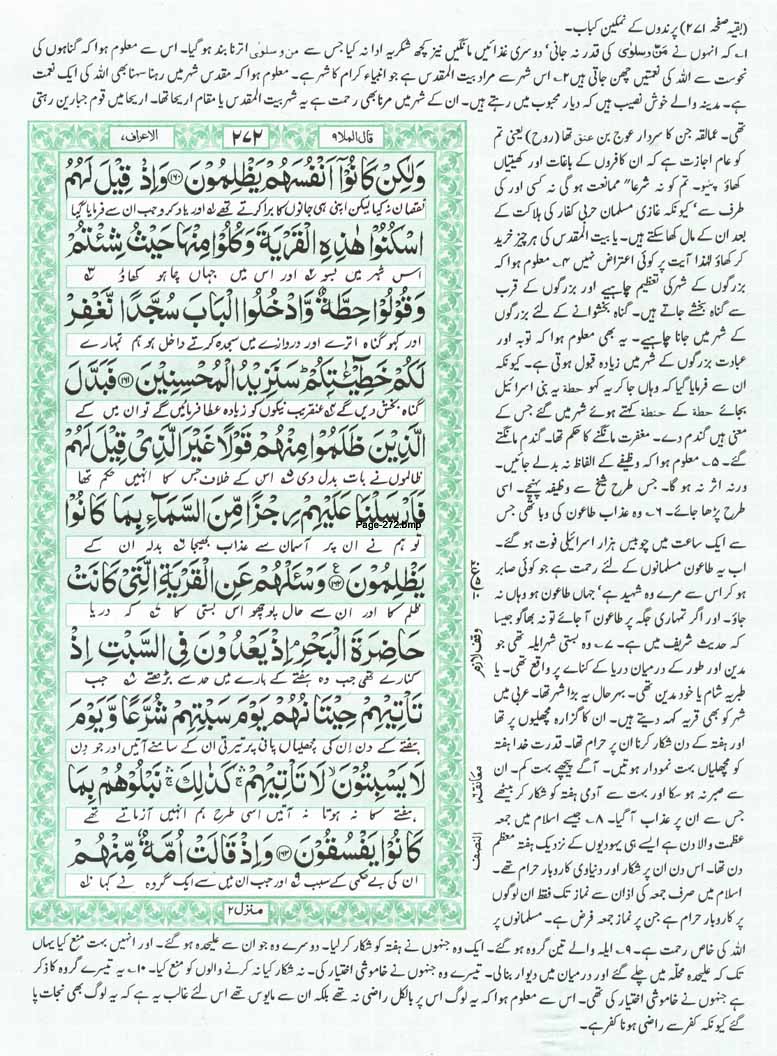 (بقیہ صفحہ ۲۷۱) پرندوں کے نمکین کباب۔
۱؎ کہ انہوں نے من و سلویٰ کی قدر نہ جانی' دوسری غذائیں مانگیں نیز کچھ شکریہ ادا نہ کیا جس سے من و سلویٰ اترنا بند ہو گیا۔ اس سے معلوم ہوا کہ گناہوں کی
نحوست سے اللہ کی نعمتیں چھن جاتی ہیں ۲؎ اس شہر سے مراد بیت المقدس ہے جو انبیاء کرام کا شہر ہے۔ معلوم ہوا کہ مقدس شہر میں رہنا سہنا بھی اللہ کی ایک نعمت
ہے۔ مدینہ والے خوش نصیب ہیں کہ دیار محبوب میں رہتے ہیں۔ ان کے شہر میں مرنا بھی رحمت ہے یہ شہر بیت المقدس یا مقام اریحا تھا۔ اریحا میں قوم جبارین رہتی
تھی۔ عمالقہ جن کا سردار عوج بن عنق تھا (روح) یعنی تم
کو عام اجازت ہے کہ ان کافروں کے باغات اور کھیتیاں
کھاؤ پیئو۔ تم کو نہ شرعا" ممانعت ہو گی نہ کسی اور کی
طرف سے' کیونکہ غازی مسلمان حربی کفار کی ہلاکت کے
بعد ان کے مال کھا سکتے ہیں۔ یا بیت المقدس کی ہر چیز خرید
کر کھاؤ لہٰذا آیت پر کوئی اعتراض نہیں ۴؎ معلوم ہوا کہ
بزرگوں کے شہر کی تعظیم چاہیے اور بزرگوں کے قرب
سے گناہ بخشے جاتے ہیں۔ گناہ بخشوانے کے لئے بزرگوں
کے شہر میں جانا چاہیے۔ یہ بھی معلوم ہوا کہ توبہ اور
عبادت بزرگوں کے شہر میں زیادہ قبول ہوتی ہے۔ کیونکہ
ان سے فرمایا گیا کہ وہاں جا کر یہ کہو حطۃ یہ بنی اسرائیل
بجائے حطۃ کے حنطۃ کہتے ہوئے شہر میں گئے جس کے
معنی ہیں گندم دے۔ مغفرت مانگنے کا حکم تھا۔ گندم مانگتے
گئے۔ ۵؎ معلوم ہوا کہ وظیفے کے الفاظ نہ بدلے جائیں۔
ورنہ اثر نہ ہو گا۔ جس طرح شیخ سے وظیفہ پہنچے۔ اسی
طرح پڑھا جائے۔ ۶؎ وہ عذاب طاعون کی وبا تھی جس
سے ایک ساعت میں چوبیس ہزار اسرائیلی فوت ہو گئے۔
اب یہ طاعون مسلمانوں کے لئے رحمت ہے جو کوئی صابر
ہو کر اس سے مرے وہ شہید ہے' جہاں طاعون ہو وہاں نہ
جاؤ۔ اور اگر تمہاری جگہ پر طاعون آ جائے تو نہ بھاگو جیسا
کہ حدیث شریف میں ہے۔ ۷؎ وہ بستی شہر ایلہ تھی جو
مدین اور طور کے درمیان دریا کے کنارے پر واقع تھی۔ یا
طبریہ شام یا خود مدین تھی۔ بہرحال یہ بڑا شہر تھا۔ عربی میں
شہر کو بھی قریہ کہہ دیتے ہیں۔ ان کا گزارہ مچھلیوں پر تھا
اور ہفتہ کے دن شکار کرنا ان پر حرام تھا۔ قدرت خدا ہفتہ
کو مچھلیاں بہت نمودار ہوتیں۔ آگے پیچھے بہت کم۔ ان
سے صبر نہ ہو سکا اور بہت سے آدمی ہفتہ کو شکار کر بیٹھے
جس سے ان پر عذاب آ گیا۔ ۸؎ جیسے اسلام میں جمعہ
عظمت والا دن ہے ایسے ہی یہودیوں کے نزدیک ہفتہ معظم
دن تھا۔ اس دن ان پر شکار اور دنیاوی کاروبار حرام تھے۔
اسلام میں صرف جمعہ کی اذان سے نماز تک فقط ان لوگوں
پر کاروبار حرام ہے جن پر نماز جمعہ فرض ہے۔ مسلمانوں پر
قال الملا ۹ ۲۷۲ الاعراف ۷
وَلٰكِنْ كَانُوْۤا اَنْفُسَهُمْ يَظْلِمُوْنَ ﴿۱۶۰﴾ وَاِذْ قِيْلَ لَهُمُ
نقصان نہ کیا لیکن اپنی ہی جانوں کا برا کرتے تھے اور یاد کرو جب ان سے فرمایا گیا
اسْكُنُوْا هٰذِهِ الْقَرْيَةَ وَكُلُوْا مِنْهَا حَيْثُ شِئْتُمْ
اس شہر میں بسو اور اس میں جہاں چاہو کھاؤ
وَقُوْلُوْا حِطَّةٌ وَّادْخُلُوا الْبَابَ سُجَّدًا نَّغْفِرْ
اور کہو گناہ اترے اور دروازے میں سجدہ کرتے داخل ہو ہم تمہارے
لَكُمْ خَطِيْٓـٰٔتِكُمْ ؕ سَنَزِيْدُ الْمُحْسِنِيْنَ ﴿۱۶۱﴾ فَبَدَّلَ
گناہ بخش دیں گے عنقریب نیکوں کو زیادہ عطا فرمائیں گے تو ان میں کے
الَّذِيْنَ ظَلَمُوْا مِنْهُمْ قَوْلًا غَيْرَ الَّذِيْ قِيْلَ لَهُمْ
ظالموں نے بات بدل دی اس کے خلاف جس کا انہیں حکم تھا
فَاَرْسَلْنَا عَلَيْهِمْ رِجْزًا مِّنَ السَّمَآءِ بِمَا كَانُوْا
Page-272.bmp
تو ہم نے ان پر آسمان سے عذاب بھیجا بدلہ ان کے
يَظْلِمُوْنَ ﴿۱۶۲﴾ وَسْـَٔلْهُمْ عَنِ الْقَرْيَةِ الَّتِيْ كَانَتْ
ظلم کا اور ان سے حال پوچھو اس بستی کا کہ دریا
حَاضِرَةَ الْبَحْرِ ۘ اِذْ يَعْدُوْنَ فِي السَّبْتِ اِذْ
کنارے تھی جب وہ ہفتے کے بارے میں حد سے بڑھتے جب
تَاْتِيْهِمْ حِيْتَانُهُمْ يَوْمَ سَبْتِهِمْ شُرَّعًا وَّيَوْمَ
ہفتے کے دن ان کی مچھلیاں پانی پر تیرتی ان کے سامنے آتیں اور جو دن
لَا يَسْبِتُوْنَ ۙ لَا تَاْتِيْهِمْ ۛ كَذٰلِكَ ۛ نَبْلُوْهُمْ بِمَا
ہفتے کا نہ ہوتا نہ آتیں اسی طرح ہم انہیں آزماتے تھے
كَانُوْا يَفْسُقُوْنَ ﴿۱۶۳﴾ وَاِذْ قَالَتْ اُمَّةٌ مِّنْهُمْ
ان کی بے حکمی کے سبب اور جب ان میں سے ایک گروہ نے کہا
منزل ۲
وقف لازم
معانقہ
النصف
اللہ کی خاص رحمت ہے۔ ۹؎ ایلہ والے تین گروہ ہو گئے۔ ایک وہ جنہوں نے ہفتہ کو شکار کر لیا۔ دوسرے وہ جو ان سے علیحدہ ہو گئے۔ اور انہیں بہت منع کیا یہاں
تک کہ علیحدہ محلّہ میں چلے گئے اور درمیان میں دیوار بنالی۔ تیسرے وہ جنہوں نے خاموشی اختیار کی۔ نہ شکار کیا نہ کرنے والوں کو منع کیا۔ ۱۰؎ یہ تیسرے گروہ کا ذکر
ہے جنہوں نے خاموشی اختیار کی تھی۔ اس سے معلوم ہوا کہ یہ لوگ اس پر بالکل راضی نہ تھے بلکہ ان سے مایوس تھے اس لئے غالب یہ ہے کہ یہ لوگ بھی نجات پا
گئے کیونکہ کفر سے راضی ہونا کفر ہے۔